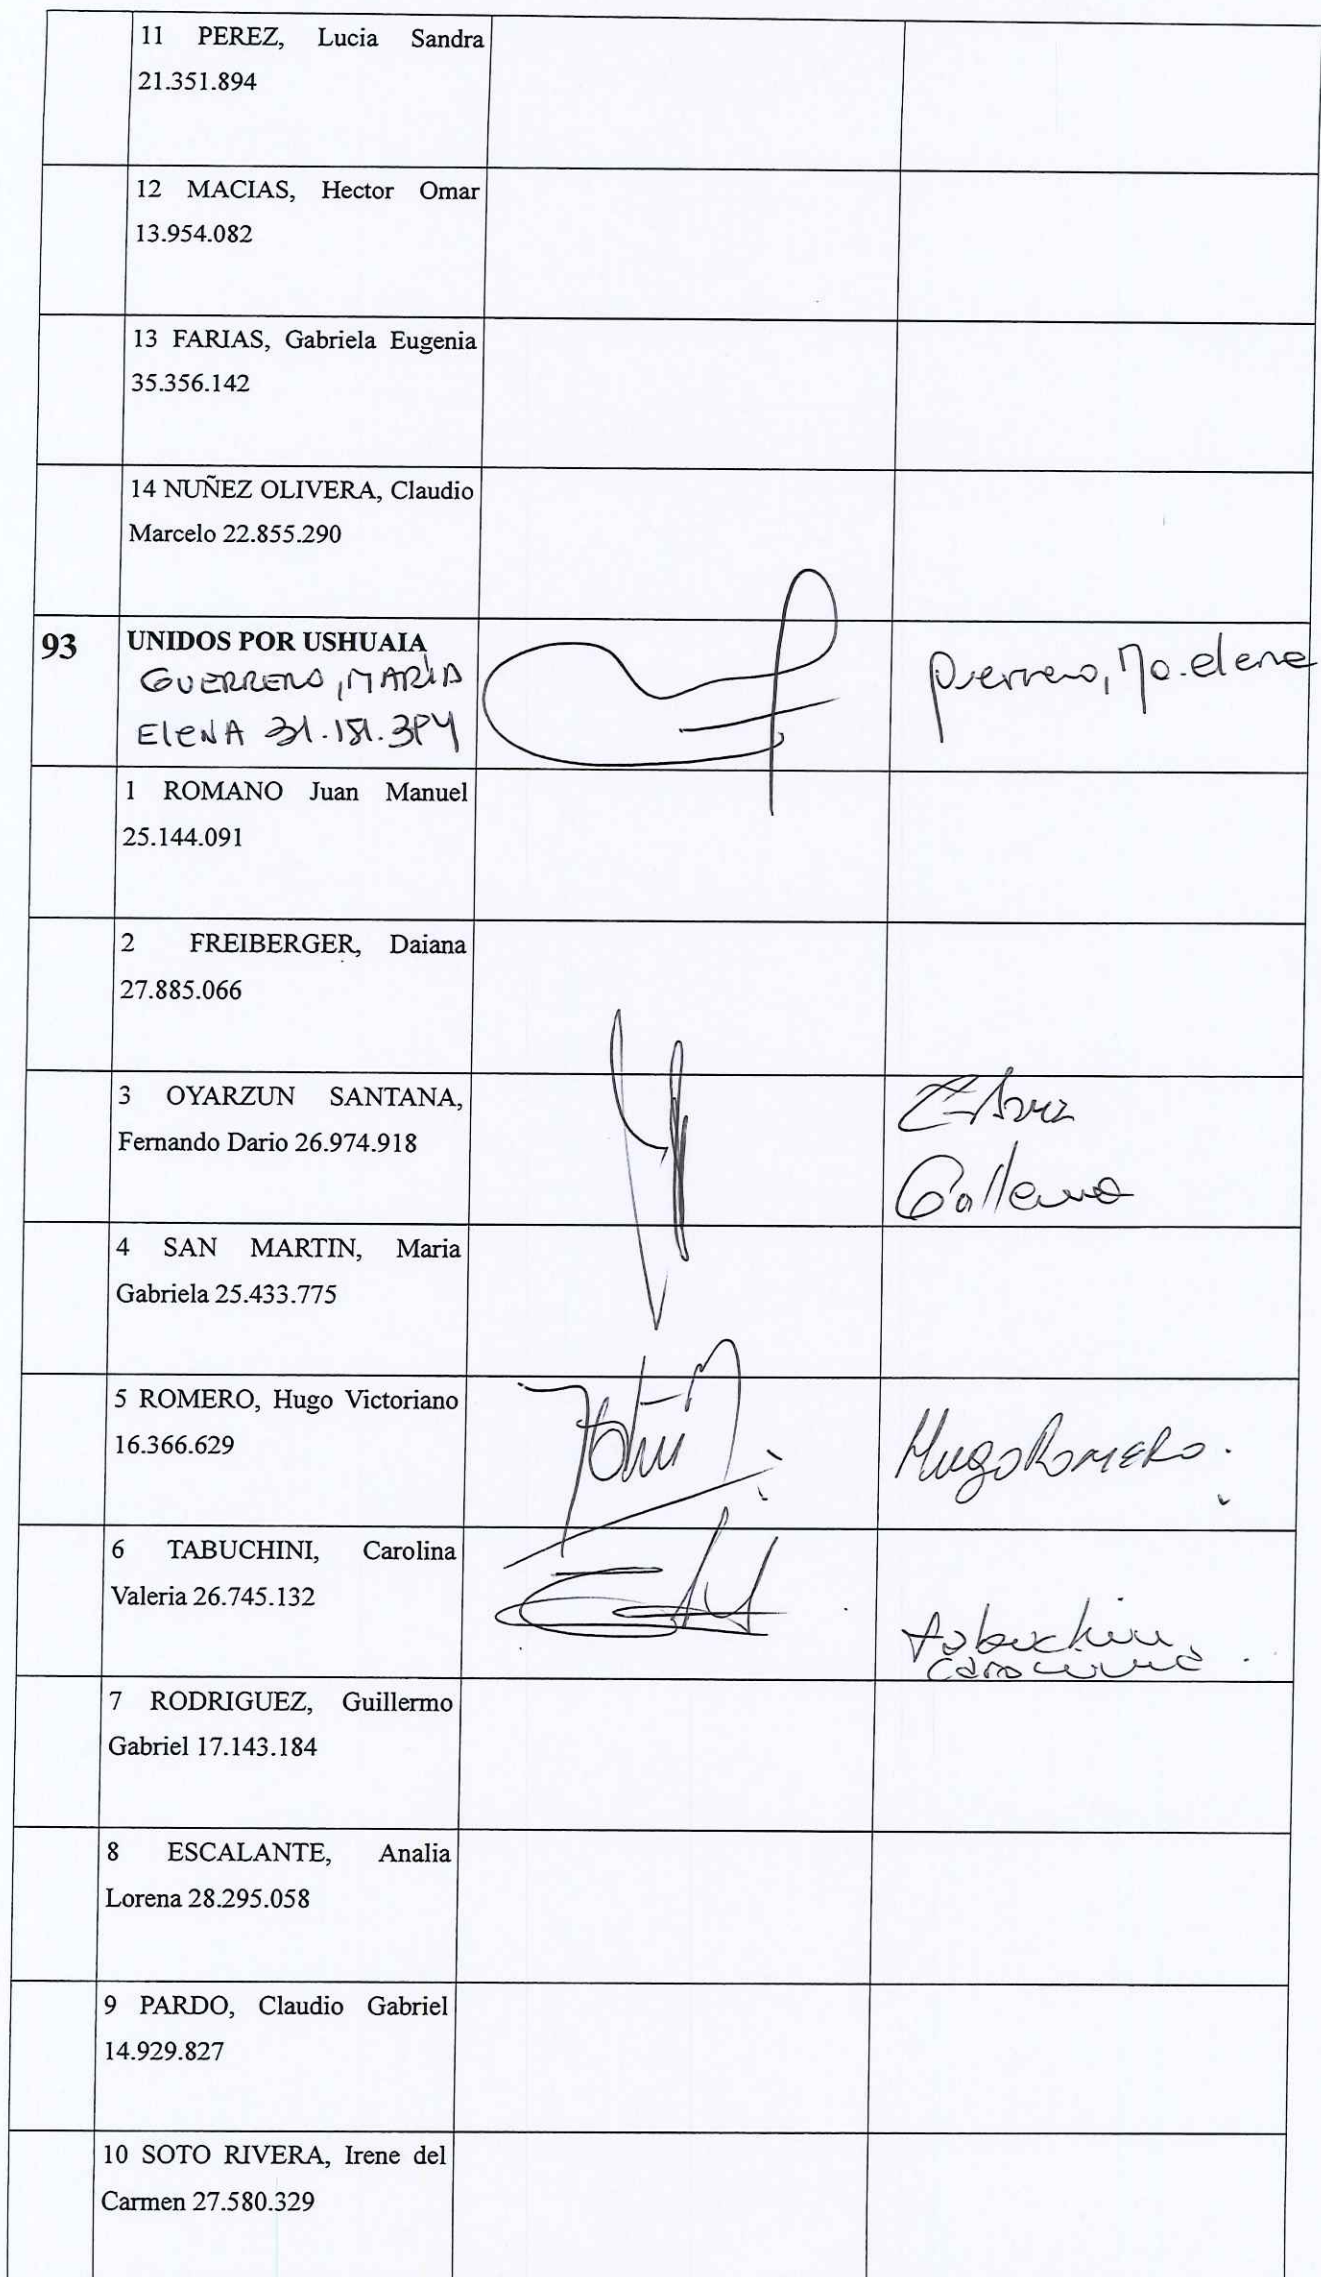 11 PEREZ, Lucia Sandra
21.351.894
12 MACIAS, Hector Omar
13.954.082
13 FARIAS, Gabriela Eugenia
35.356.142
14 NUÑEZ OLIVERA, Claudio
Marcelo 22.855.290
93 UNIDOS POR USHUAIA
GUERRERO, MARIA
ELENA
Guerrero, Ma. elena
1 ROMANO Juan Manuel
25.144.091
2 FREIBERGER, Daiana
27.885.066
3 OYARZUN SANTANA,
Fernando Dario 26.974.918
4 SAN MARTIN, Maria
Gabriela 25.433.775
5 ROMERO, Hugo Victoriano
16.366.629
Hugo ROMERO.
6 TABUCHINI, Carolina
Valeria 26.745.132
tabuchini
carolina
7 RODRIGUEZ, Guillermo
Gabriel 17.143.184
8 ESCALANTE, Analia
Lorena 28.295.058
9 PARDO, Claudio Gabriel
14.929.827
10 SOTO RIVERA, Irene del
Carmen 27.580.329